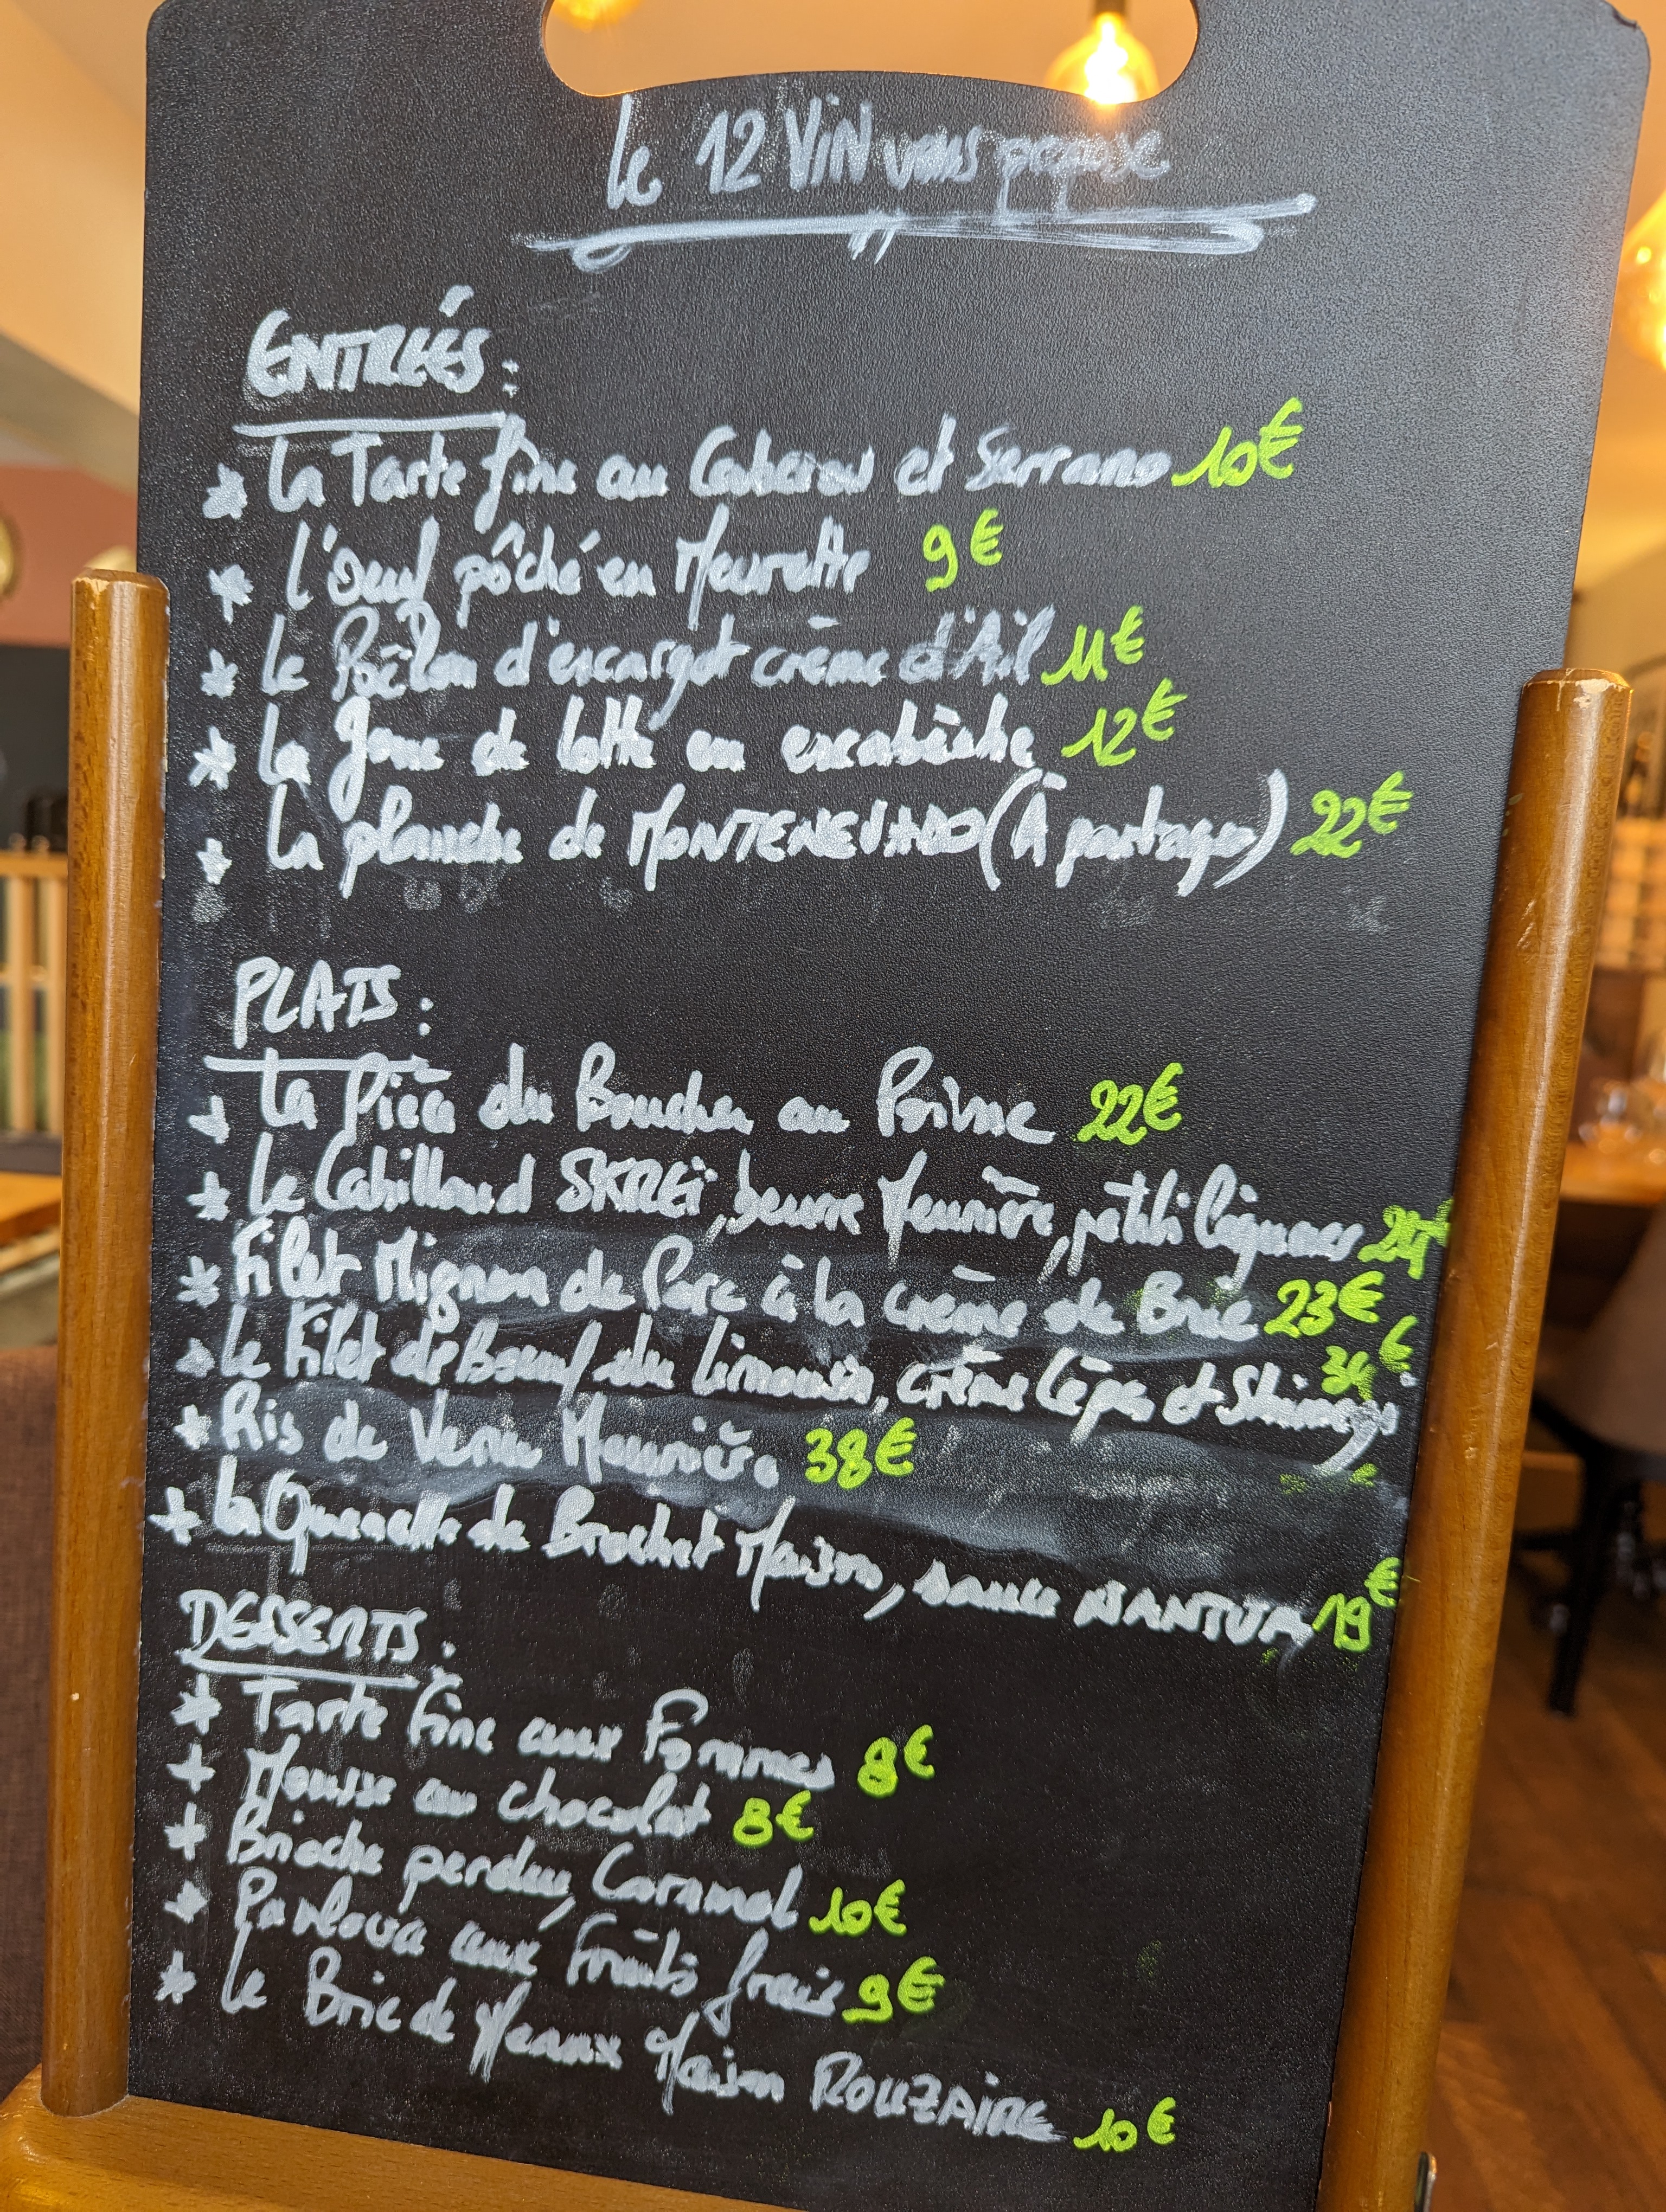 Le 12 VIN vous propose
ENTRÉES :
* La Tarte fine au Cabécou et Serrano 10€
* L'oeuf pôché en Meurette 9€
* Le Poêlon d'escargot crème d'Ail 11€
* La Joue de lotte en escabèche 12€
* La planche de MONTENEVADO (À partager) 22€
PLATS :
* La Pièce du Boucher au Poivre 22€
* Le Cabillaud SKREÏ, beurre Meunière, petits légumes
* Filet Mignon de Porc à la crème de Brie 23€
* Le Filet de Boeuf du Limousin, crème Cèpes et Shimeji
* Ris de Veau Meunière 38€
* La Quenelle de Brochet Maison, sauce NANTUA 19€
DESSERTS :
* Tarte Fine aux Pommes 8€
* Mousse au chocolat 8€
* Brioche perdue, Caramel 10€
* Pavlova aux Fruits frais 9€
* Le Brie de Meaux Maison ROUZAIRE 10€